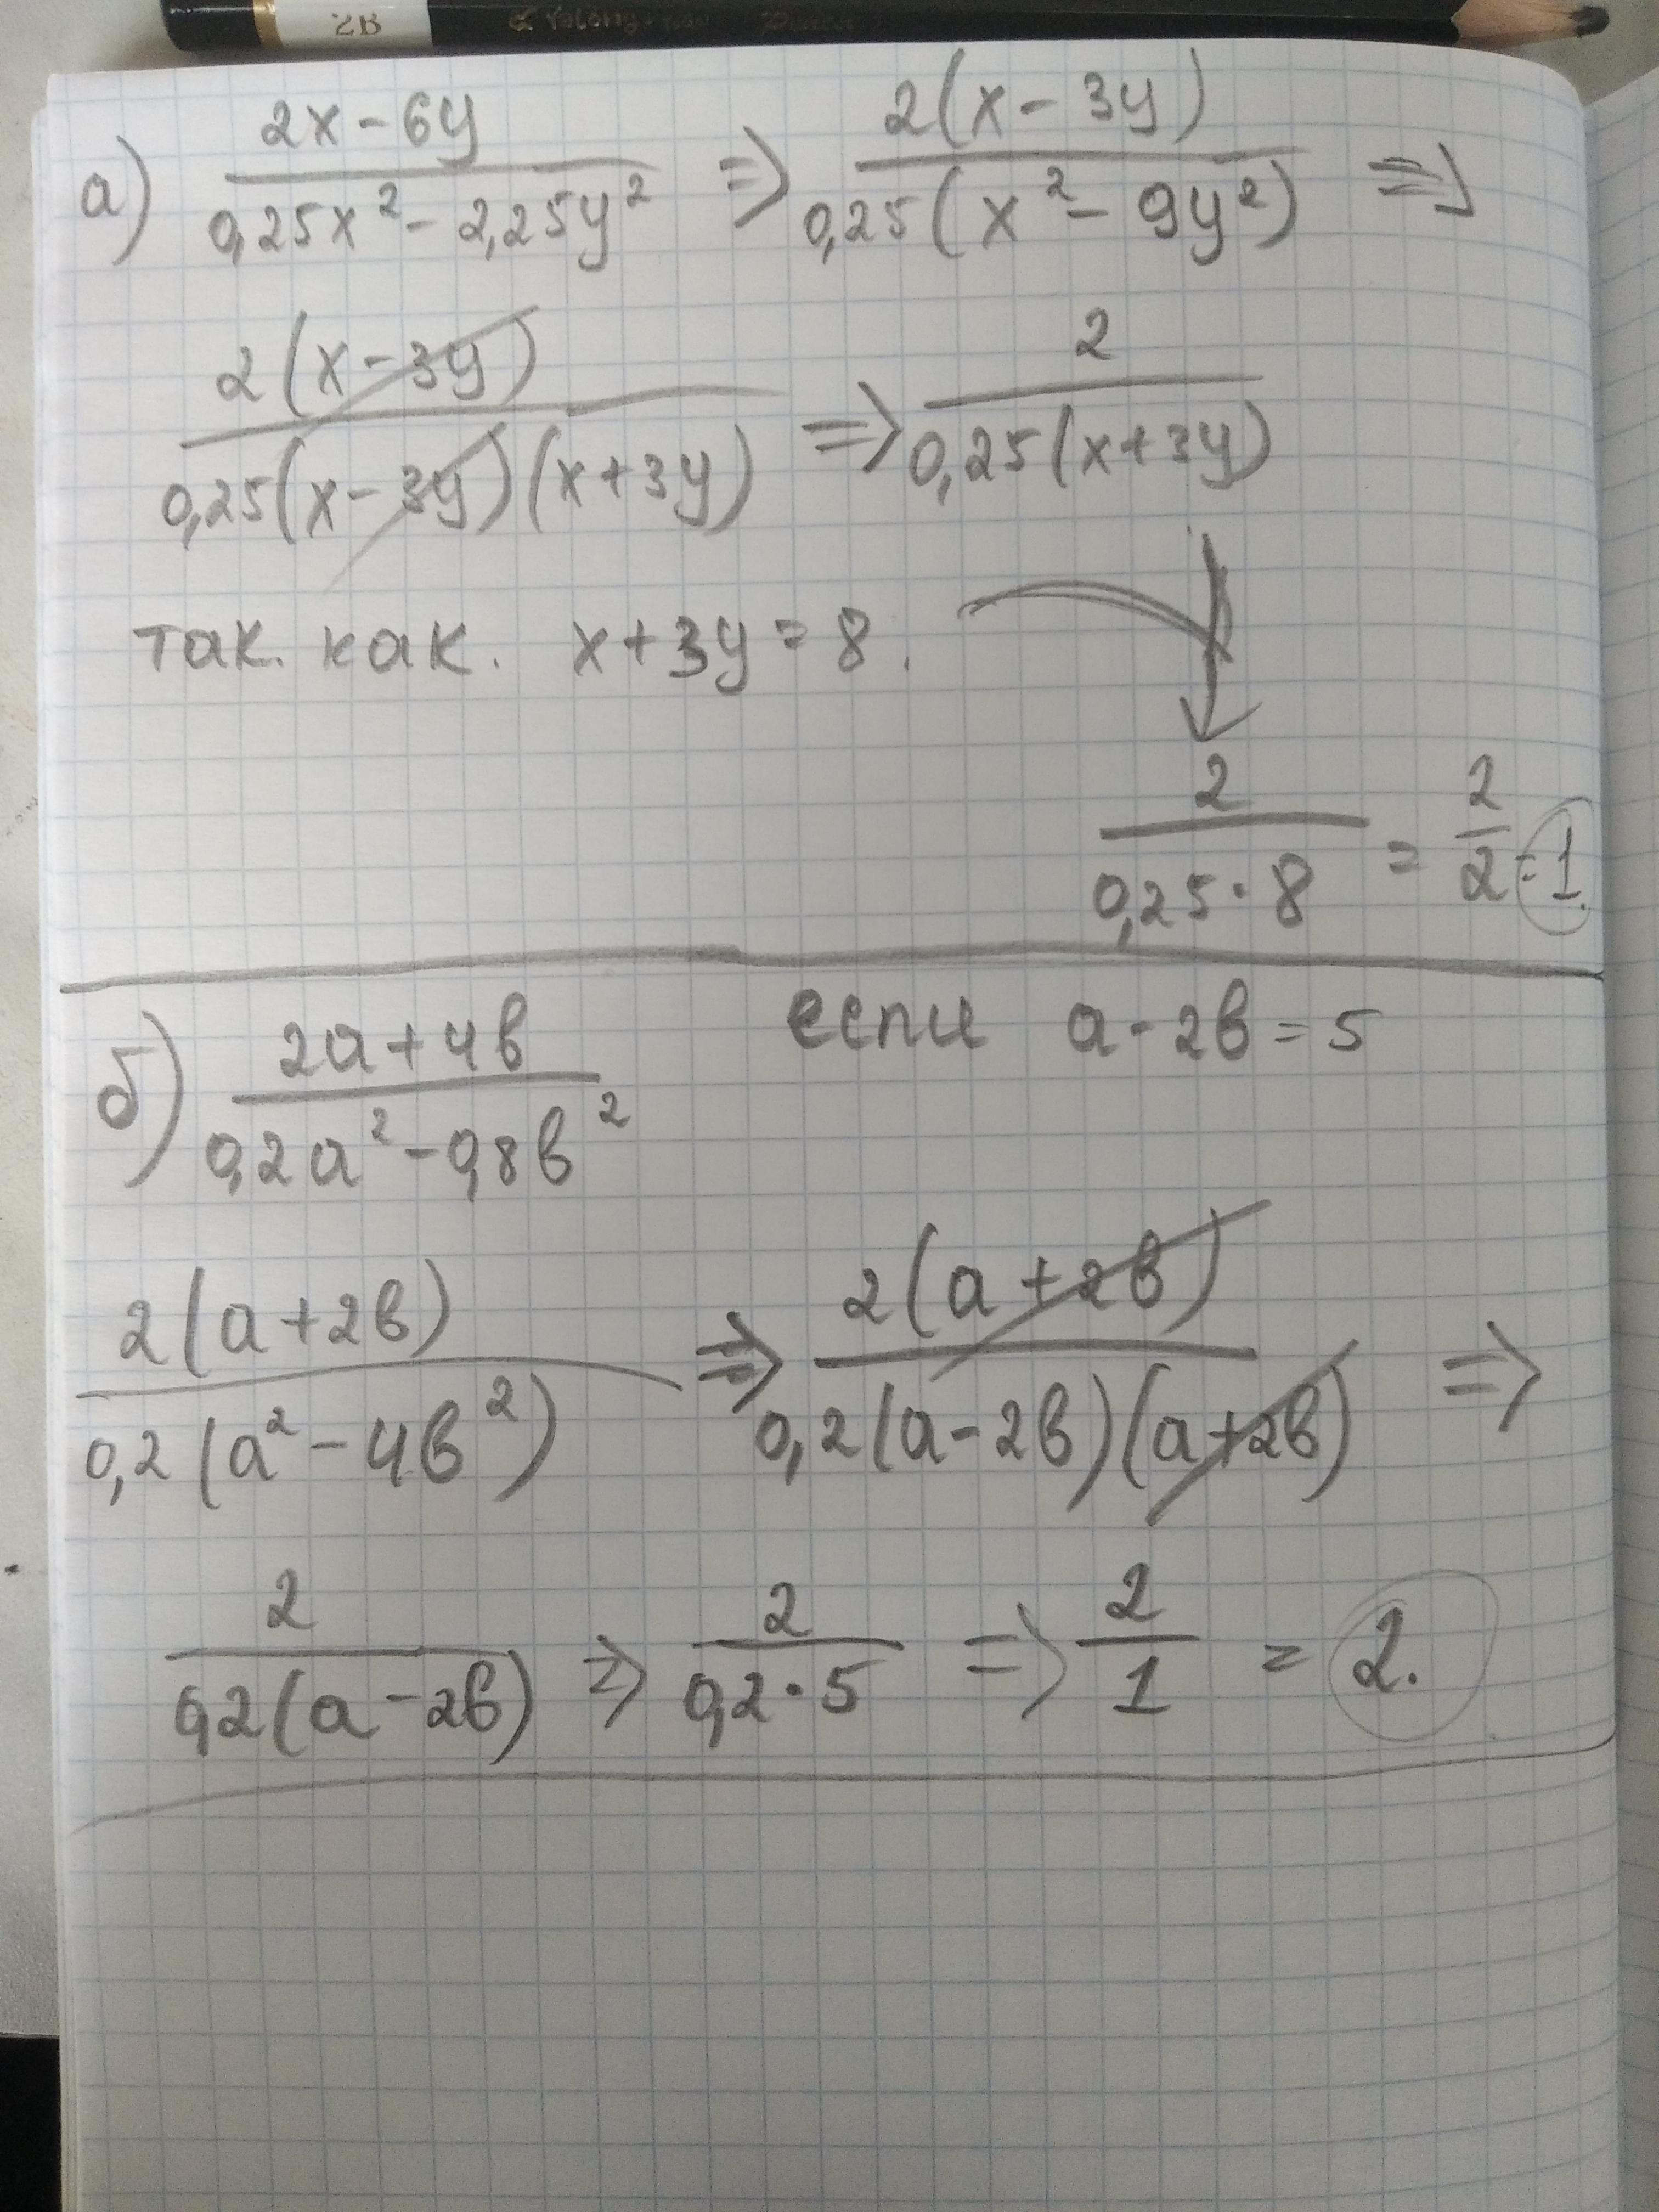 2B
а) (2x - 6y)/(0,25x² - 2,25y²) => 2(x - 3y)/(0,25(x² - 9y²)) =>
2(x - 3y)/(0,25(x - 3y)(x + 3y)) => 2/(0,25(x + 3y))
так. как. x + 3y = 8.
2/(0,25 · 8) = 2/2 = 1.
б) (2а + 4в)/(0,2а² - 0,8в²) если а - 2в = 5
2(а + 2в)/(0,2(а² - 4в²)) => 2(а + 2в)/(0,2(а - 2в)(а + 2в)) =>
2/(0,2(а - 2в)) => 2/(0,2 · 5) => 2/1 = 2.